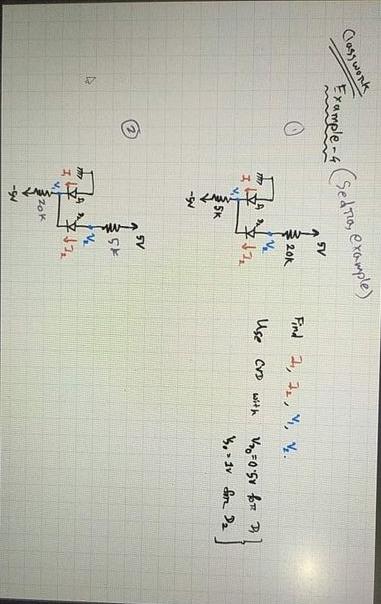 Classwork
Example-4 (Sedra, example)
①
5V
20K
V₂
D₁
D₂
I₁
I₂
V₁
5K
-5V
Find I₁, I₂, V₁, V₂.
Use CVD with V_D0 = 0.5V for D₁
V_D0 = 1V for D₂
②
5V
5K
V₂
D₁
D₂
I₁
I₂
V₁
20K
-5V